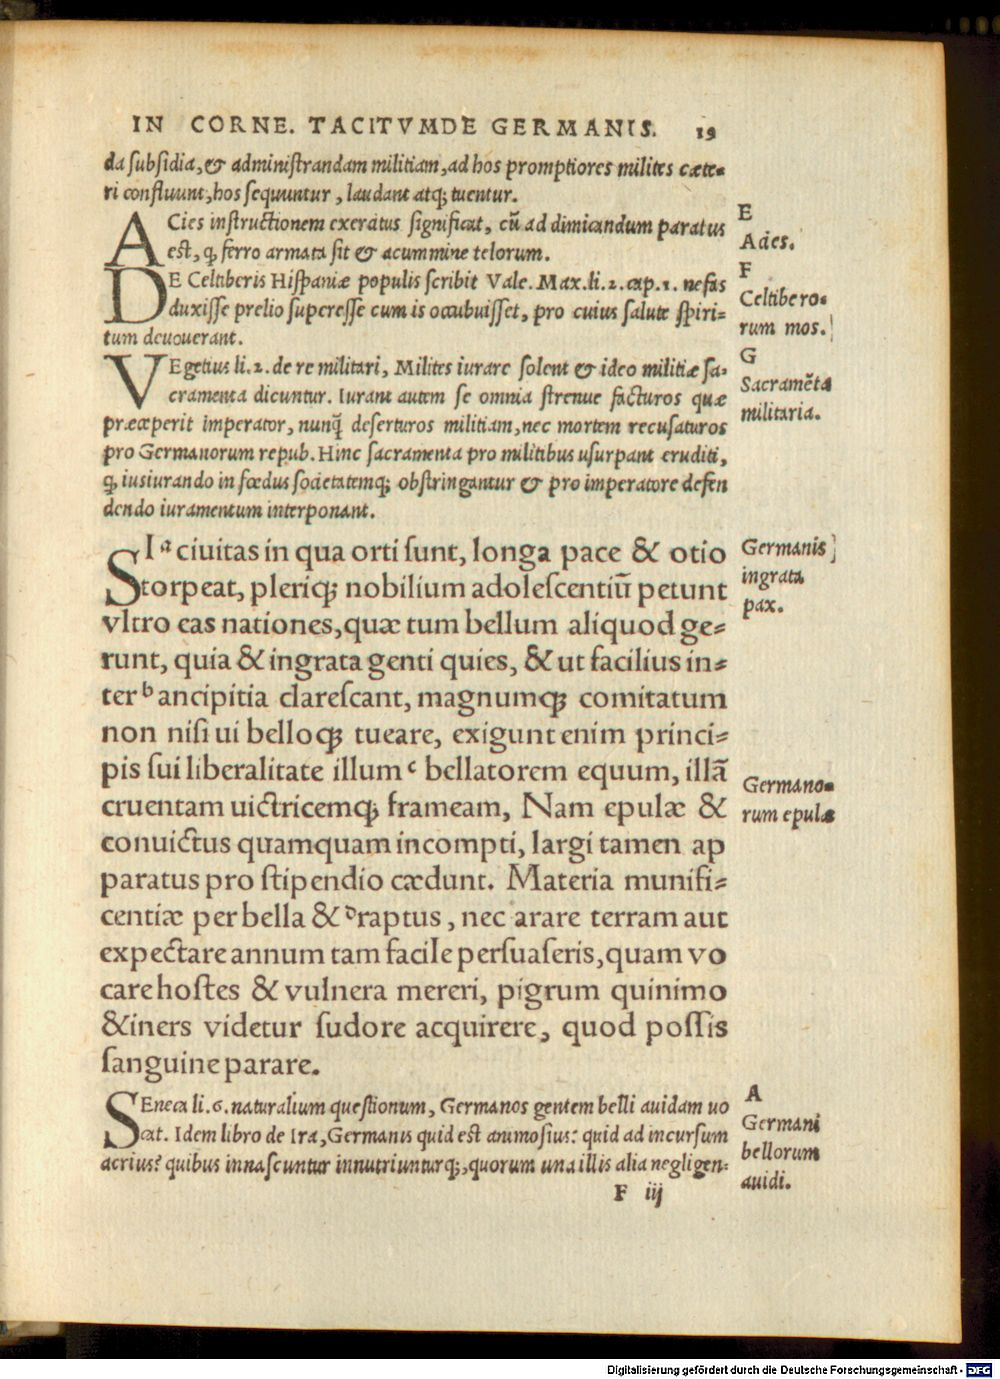 IN CORNE. TACITVMDE GERMANIS. 19
da subsidia, & administrandam militiam, ad hos promptiores milites cæte-
ri confluunt, hos sequuntur, laudant atq; tuentur.
ACies instructionem exercitus significat, cū ad dimicandum paratus
est, q, ferro armata sit & acummine telorum.
E
Acies.
DE Celtiberis Hispaniæ populis scribit Vale. Max. li. 2. cap. 1. nefas
duxisse prelio superesse cum is occubuisset, pro cuius salute spiri=
tum deuouerant.
F
Celtibero-
rum mos.
VEgetius li. 2. de re militari, Milites iurare solent & ideo militiæ sa-
cramenta dicuntur. Iurant autem se omnia strenue facturos quæ
præceperit imperator, nunq̄ deserturos militiam, nec mortem recusaturos
pro Germanorum repub. Hinc sacramenta pro militibus usurpant eruditi,
q, iusiurando in fœdus societatemq; obstringantur & pro imperatore defen
dendo iuramentum interponant.
G
Sacramēta
militaria.
SI a ciuitas in qua orti sunt, longa pace & otio
torpeat, pleriq; nobilium adolescentiū petunt
vltro eas nationes, quæ tum bellum aliquod ge=
runt, quia & ingrata genti quies, & ut facilius in=
ter b ancipitia clarescant, magnumq; comitatum
non nisi ui belloq; tueare, exigunt enim princi=
pis sui liberalitate illum c bellatorem equum, illā
cruentam uictricemq; frameam, Nam epulæ &
conuictus quamquam incompti, largi tamen ap
paratus pro stipendio cædunt. Materia munifi=
centiæ per bella & D raptus, nec arare terram aut
expectare annum tam facile persuaseris, quam vo
care hostes & vulnera mereri, pigrum quinimo
& iners videtur sudore acquirere, quod possis
sanguine parare.
Germanis
ingrata
pax.
Germano-
rum epulæ
SEneca li. 6. naturalium questionum, Germanos gentem belli auidam uo
cat. Idem libro de Ira, Germanis quid est animosius? quid ad incursum
acrius? quibus innascuntur innutriunturq;, quorum una illis alia negligen-
A
Germani
bellorum
auidi.
F iij
Digitalisierung gefördert durch die Deutsche Forschungsgemeinschaft - DFG